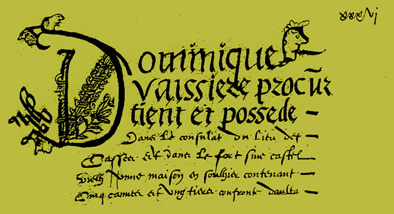 xxxvj
Dominique
vaissiere procur
tient et possede
Dans le consulat du lieu det
Cassaes Et dans le fort sive castel
vieilh une maison en soulhier contenant
Cinq cannes et ung tiers confront daulta